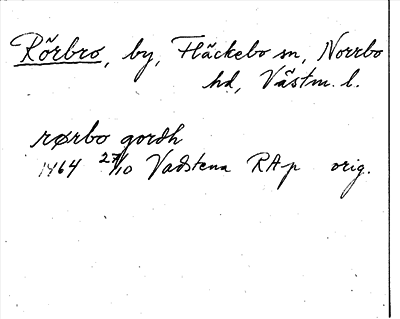 Rörbro, by, Fläckebo sn, Norrbo
hd, Västm. l.
rørbo gordh
1464 27/10 Vadstena RAp orig.